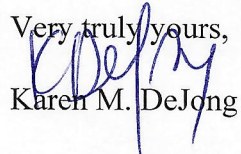 Very truly yours,
Karen M. DeJong